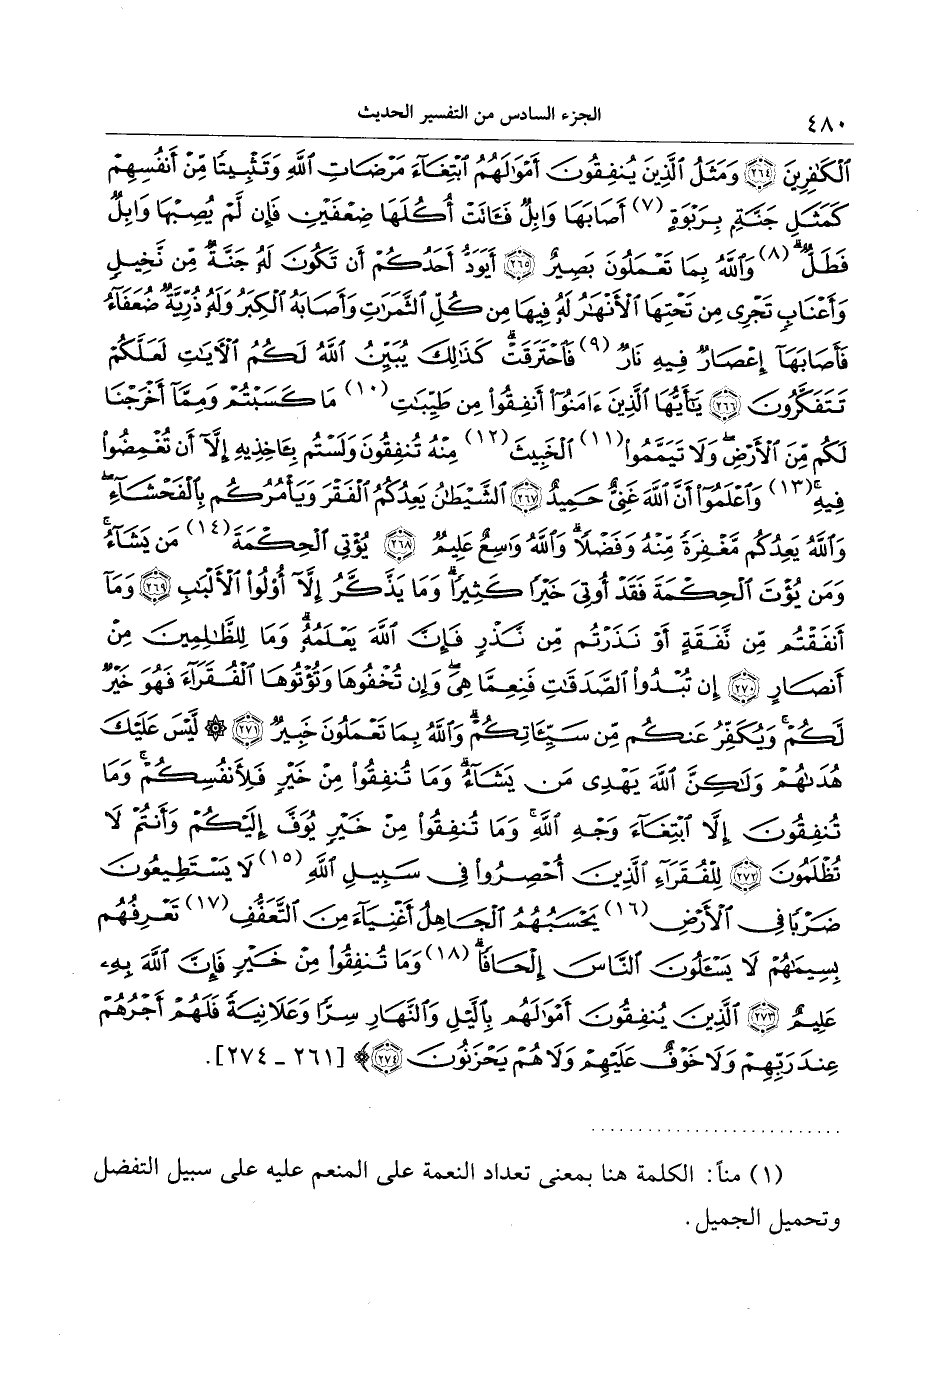 ٤٨٠ الجزء السادس من التفسير الحديث
ٱلْكَٰفِرِينَ ﴿٢٦٤﴾ وَمَثَلُ ٱلَّذِينَ يُنفِقُونَ أَمْوَٰلَهُمُ ٱبْتِغَآءَ مَرْضَاتِ ٱللَّهِ وَتَثْبِيتًا مِّنْ أَنفُسِهِمْ
كَمَثَلِ جَنَّةٍۭ بِرَبْوَةٍ (٧) أَصَابَهَا وَابِلٌ فَـَٔاتَتْ أُكُلَهَا ضِعْفَيْنِ فَإِن لَّمْ يُصِبْهَا وَابِلٌ
فَطَلٌّ ۗ (٨) وَٱللَّهُ بِمَا تَعْمَلُونَ بَصِيرٌ ﴿٢٦٥﴾ أَيَوَدُّ أَحَدُكُمْ أَن تَكُونَ لَهُۥ جَنَّةٌ مِّن نَّخِيلٍ
وَأَعْنَابٍ تَجْرِى مِن تَحْتِهَا ٱلْأَنْهَٰرُ لَهُۥ فِيهَا مِن كُلِّ ٱلثَّمَرَٰتِ وَأَصَابَهُ ٱلْكِبَرُ وَلَهُۥ ذُرِّيَّةٌ ضُعَفَآءُ
فَأَصَابَهَآ إِعْصَارٌ فِيهِ نَارٌ (٩) فَٱحْتَرَقَتْ ۗ كَذَٰلِكَ يُبَيِّنُ ٱللَّهُ لَكُمُ ٱلْآيَٰتِ لَعَلَّكُمْ
تَتَفَكَّرُونَ ﴿٢٦٦﴾ يَٰٓأَيُّهَا ٱلَّذِينَ ءَامَنُوٓا۟ أَنفِقُوا۟ مِن طَيِّبَٰتِ (١٠) مَا كَسَبْتُمْ وَمِمَّآ أَخْرَجْنَا
لَكُم مِّنَ ٱلْأَرْضِ ۖ وَلَا تَيَمَّمُوا۟ (١١) ٱلْخَبِيثَ (١٢) مِنْهُ تُنفِقُونَ وَلَسْتُم بِـَٔاخِذِيهِ إِلَّآ أَن تُغْمِضُوا۟
فِيهِ ۚ (١٣) وَٱعْلَمُوٓا۟ أَنَّ ٱللَّهَ غَنِىٌّ حَمِيدٌ ﴿٢٦٧﴾ ٱلشَّيْطَٰنُ يَعِدُكُمُ ٱلْفَقْرَ وَيَأْمُرُكُم بِٱلْفَحْشَآءِ ۖ
وَٱللَّهُ يَعِدُكُم مَّغْفِرَةً مِّنْهُ وَفَضْلًا ۗ وَٱللَّهُ وَٰسِعٌ عَلِيمٌ ﴿٢٦٨﴾ يُؤْتِى ٱلْحِكْمَةَ (١٤) مَن يَشَآءُ ۚ
وَمَن يُؤْتَ ٱلْحِكْمَةَ فَقَدْ أُوتِىَ خَيْرًا كَثِيرًا ۗ وَمَا يَذَّكَّرُ إِلَّآ أُو۟لُوا۟ ٱلْأَلْبَٰبِ ﴿٢٦٩﴾ وَمَآ
أَنفَقْتُم مِّن نَّفَقَةٍ أَوْ نَذَرْتُم مِّن نَّذْرٍ فَإِنَّ ٱللَّهَ يَعْلَمُهُۥ ۗ وَمَا لِلظَّٰلِمِينَ مِنْ
أَنصَارٍ ﴿٢٧٠﴾ إِن تُبْدُوا۟ ٱلصَّدَقَٰتِ فَنِعِمَّا هِىَ ۖ وَإِن تُخْفُوهَا وَتُؤْتُوهَا ٱلْفُقَرَآءَ فَهُوَ خَيْرٌ
لَّكُمْ ۚ وَيُكَفِّرُ عَنكُم مِّن سَيِّـَٔاتِكُمْ ۗ وَٱللَّهُ بِمَا تَعْمَلُونَ خَبِيرٌ ﴿٢٧١﴾ ۞ لَّيْسَ عَلَيْكَ
هُدَىٰهُمْ وَلَٰكِنَّ ٱللَّهَ يَهْدِى مَن يَشَآءُ ۗ وَمَا تُنفِقُوا۟ مِنْ خَيْرٍ فَلِأَنفُسِكُمْ ۚ وَمَا
تُنفِقُونَ إِلَّا ٱبْتِغَآءَ وَجْهِ ٱللَّهِ ۚ وَمَا تُنفِقُوا۟ مِنْ خَيْرٍ يُوَفَّ إِلَيْكُمْ وَأَنتُمْ لَا
تُظْلَمُونَ ﴿٢٧٢﴾ لِلْفُقَرَآءِ ٱلَّذِينَ أُحْصِرُوا۟ فِى سَبِيلِ ٱللَّهِ (١٥) لَا يَسْتَطِيعُونَ
ضَرْبًا فِى ٱلْأَرْضِ (١٦) يَحْسَبُهُمُ ٱلْجَاهِلُ أَغْنِيَآءَ مِنَ ٱلتَّعَفُّفِ (١٧) تَعْرِفُهُم
بِسِيمَٰهُمْ لَا يَسْـَٔلُونَ ٱلنَّاسَ إِلْحَافًا ۗ (١٨) وَمَا تُنفِقُوا۟ مِنْ خَيْرٍ فَإِنَّ ٱللَّهَ بِهِۦ
عَلِيمٌ ﴿٢٧٣﴾ ٱلَّذِينَ يُنفِقُونَ أَمْوَٰلَهُم بِٱلَّيْلِ وَٱلنَّهَارِ سِرًّا وَعَلَانِيَةً فَلَهُمْ أَجْرُهُمْ
عِندَ رَبِّهِمْ وَلَا خَوْفٌ عَلَيْهِمْ وَلَا هُمْ يَحْزَنُونَ ﴿٢٧٤﴾﴾ [٢٦١ ـ ٢٧٤].
(١) مناً: الكلمة هنا بمعنى تعداد النعمة على المنعم عليه على سبيل التفضل
وتحميل الجميل.